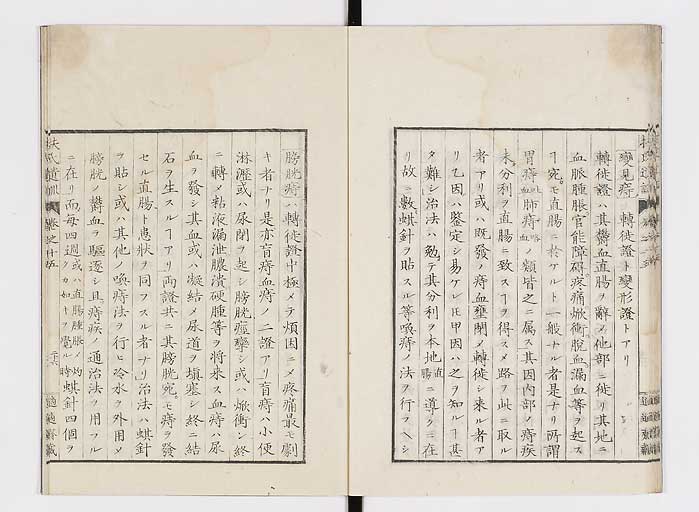 變見痔 轉徙證ト變形證トアリ
轉徙證ハ其鬱血直腸ヲ辭メ他部ニ徙リ其地ニ
血脈腫脹官能障碍疼痛焮衝脫血漏血等ヲ起ス
ヿ宛モ直腸ニ於ケルト一般ナル者是ナリ所謂
胃痔吐血肺痔咯血ノ類皆之ニ属ス其因内部ノ痔疾
未分利ヲ直腸ニ致スヿヲ得スメ路ヲ此ニ取ル
者アリ或ハ既發ノ痔血壅閉メ轉徙シ来ル者ア
リ乙因ハ鑒定シ易ケレ𪜈甲因ハ之ヲ知ルヿ甚
タ難シ治法ハ勉テ其分利ヲ本地直腸ニ導クニ在
リ故ニ數蜞針ヲ貼スル等喚痔ノ法ヲ行フヘシ
膀胱痔ハ轉徙證中極メテ煩因ニメ疼痛最モ劇
キ者ナリ是亦盲痔血痔ノ二證アリ盲痔ハ小便
淋瀝或ハ尿閉ヲ起シ膀胱痙攣シ或ハ焮衝シ終
ニ轉メ粘液漏泄膿潰硬腫等ヲ將来ス血痔ハ尿
血ヲ發シ其血或ハ凝結メ尿道ヲ塡塞シ終ニ結
石ヲ生スルヿアリ両證共ニ其膀胱宛モ痔ヲ發
セル直腸ト患狀ヲ同フスル者ナリ治法ハ蜞針
ヲ貼シ或ハ其他ノ喚痔法ヲ行ヒ冷水ヲ外用メ
膀胱ノ鬱血ヲ驅逐シ且痔疾ノ通治法ヲ用フル
ニ在リ而メ每四週或ハ直腸腫脹メ灼クカ如キヲ覺ル時蜞針四個ヲ
扶氏遺訓 卷之十五